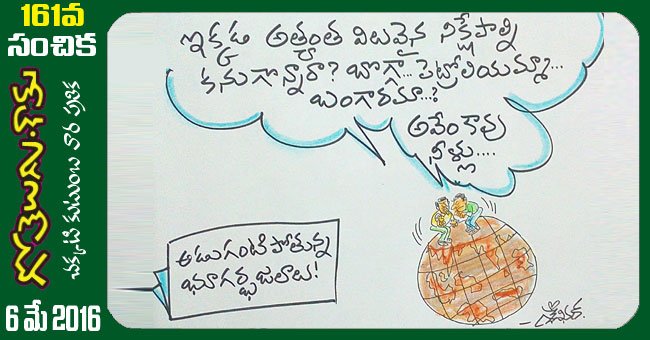 161వ
సంచిక
గోతెలుగు.కామ్
చక్కటి కుటుంబ వార పత్రిక
6 మే 2016
ఇక్కడ అత్యంత విలువైన నిక్షేపాల్ని
కనుగొన్నారా? బొగ్గా... పెట్రోలియమ్మా?...
బంగారమా..?
అవేం కావు
నీళ్లు....
అడుగంటి పోతున్న
భూగర్భజలాలు!